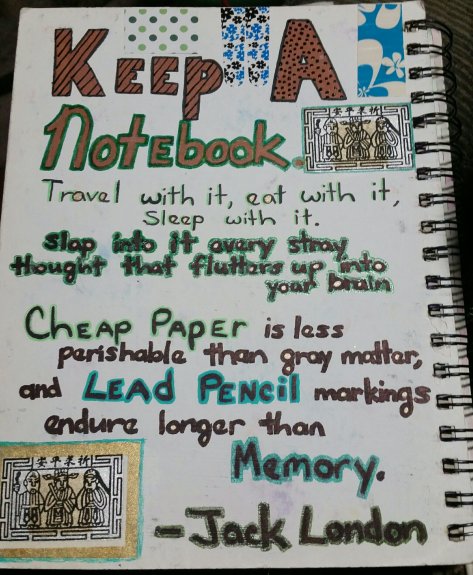 Keep A
Notebook.
安平求祈
Travel with it, eat with it,
Sleep with it.
slap into it every stray
thought that flutters up into
your brain
Cheap Paper is less
perishable than gray matter,
and LEAD PENCIL markings
endure longer than
Memory.
安平求祈
- Jack London